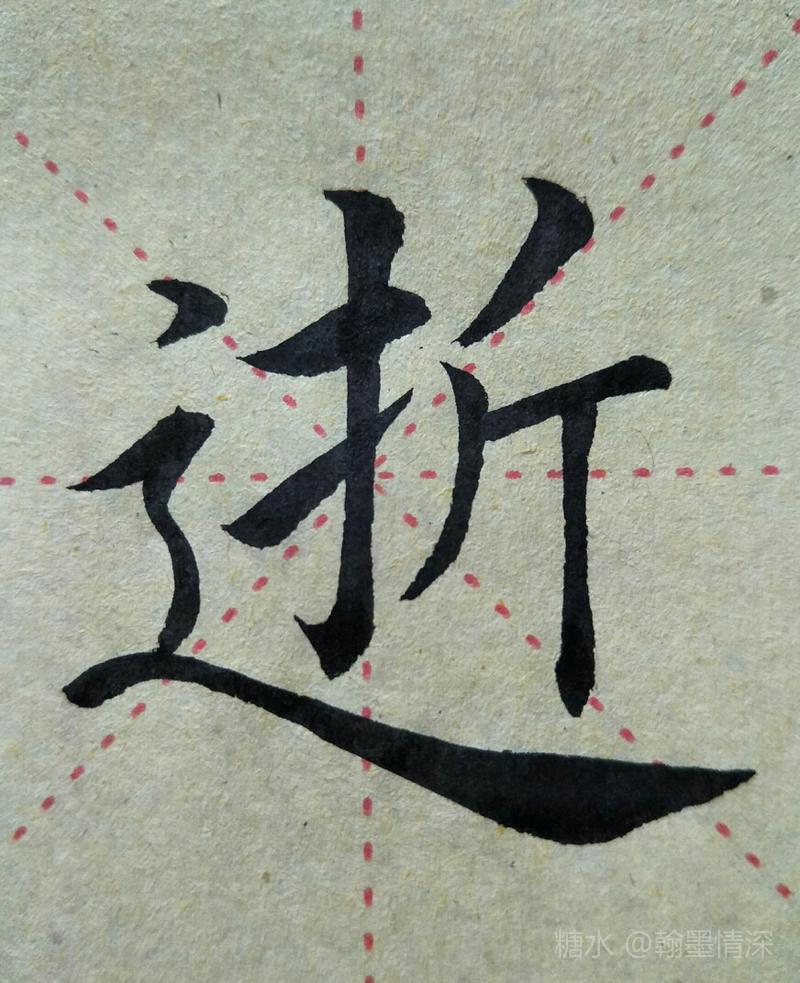 逝
糖水 @翰墨情深